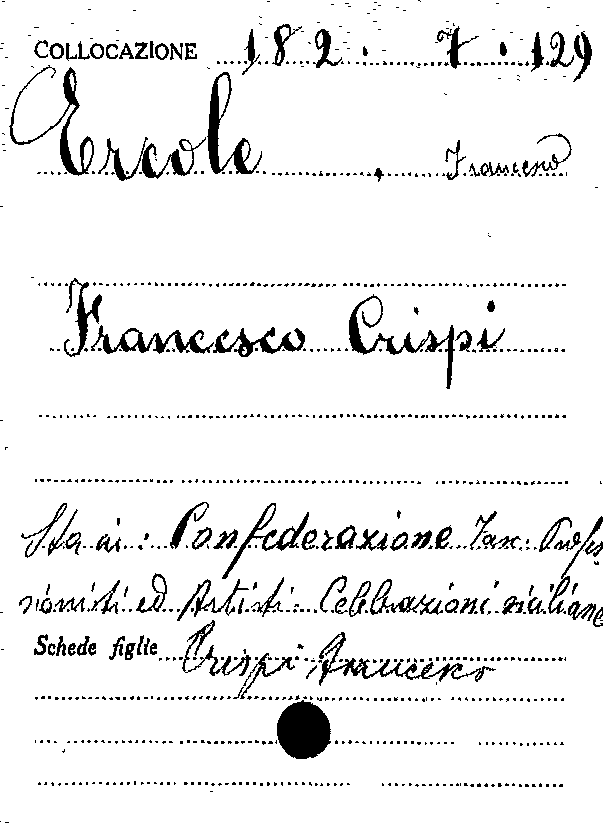 COLLOCAZIONE 182. 7. 129
Ercole, Francesco
Francesco Crispi
Sta in: Confederazione Fasc. Profes
sionisti ed Artisti. Celebrazioni siciliane
Schede figlie Crispi Francesco